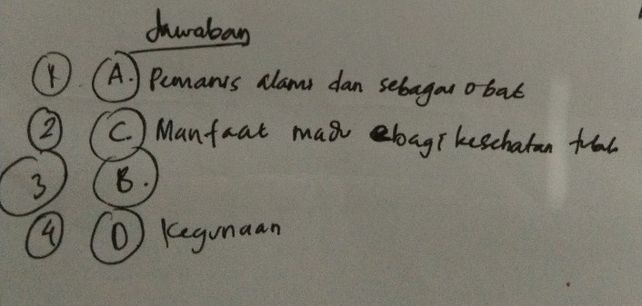 Jawaban
1. A. Pemanis alami dan sebagai obat
2 C. Manfaat madu bagi kesehatan tubuh
3 B.
4 D Kegunaan